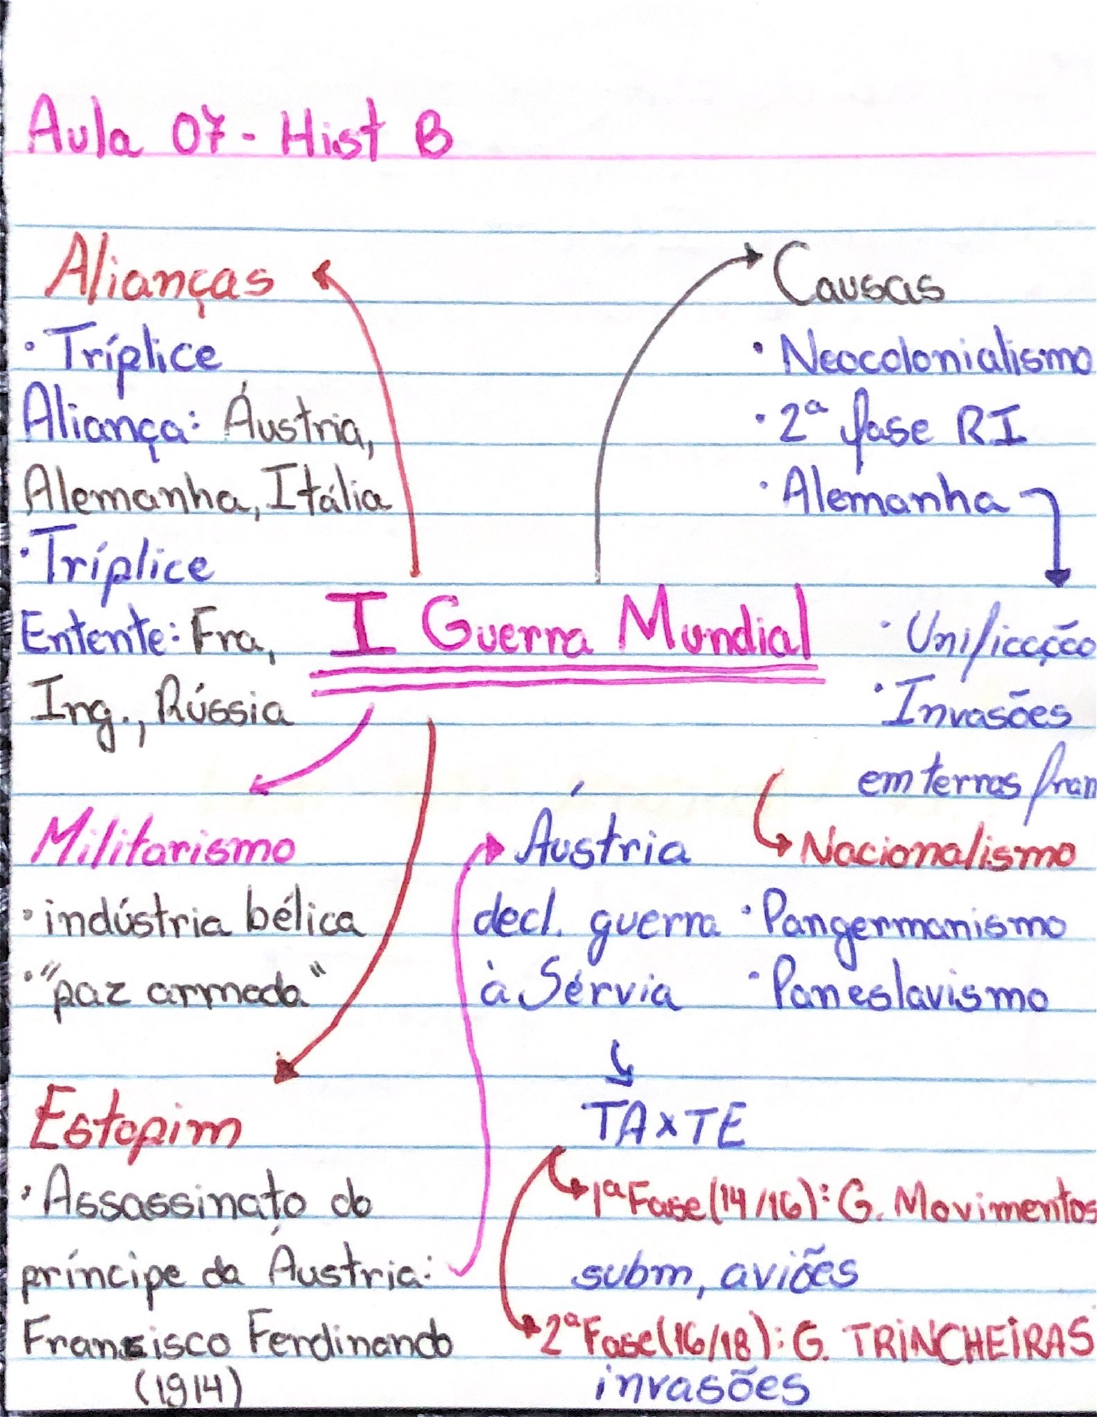 Aula 07 - Hist B
Alianças
• Tríplice
Aliança: Áustria,
Alemanha, Itália
• Tríplice
Entente: Fra,
Ing., Rússia
Causas
• Neocolonialismo
• 2ª fase RI
• Alemanha
• Unificação
• Invasões
em terras fran
I Guerra Mundial
Militarismo
• indústria bélica
• "paz armada"
Nacionalismo
• Pangermanismo
• Paneslavismo
Estopim
• Assassinato do
príncipe da Áustria:
Francisco Ferdinando
(1914)
Áustria
decl. guerra
à Sérvia
TA x TE
1ª Fase (14/16): G. Movimentos
subm, aviões
2ª Fase (16/18): G. TRINCHEIRAS
invasões